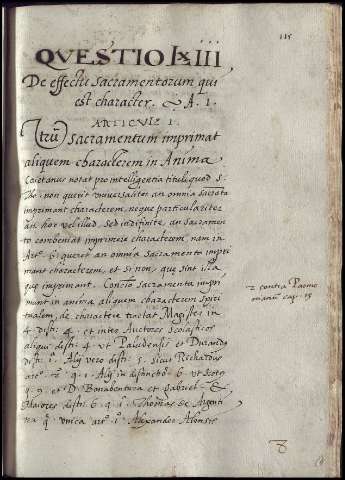 115
QVESTIO lxiii
De effectu sacramentorum qui
est character. A. 1.
ARTICVLVS 1.
Vtrũ sacramentum imprimat
aliquem characterem in Anima
Caietanus notat pro intelligentia tituli quod s.
Tho. non querit vniversaliter an omnia sacrata
imprimant characterem, neque particulariter
an hoc vel illud, sed indifinite, an sacramen
to conveniat imprimere characterem, nam in
Art.º 6 queret an omnia sacramenta impri
mant characterem, et si non, que sint illa
que imprimant. Conclº sacramenta impri
munt in anima aliquem characterem spiri
tualem, de charactere tractat Magister in
4 disti: 4. et inter Auctores scolasticos
aliqui disti: 4. vt Paludensis et Durando
disti: 1. Alij vero disti: 5. sicut Richardus
arº: 2 q. 1. Alij in distinctiº 6 vt Scotus
q. 9 et D. Bonabentura et Gabriel &
Maiores disti: 6. q. 1. Thomas de Argenti
na q. vnica arº. 1. Alexander Alensis
2 contra Parme
nianũ cap. 13